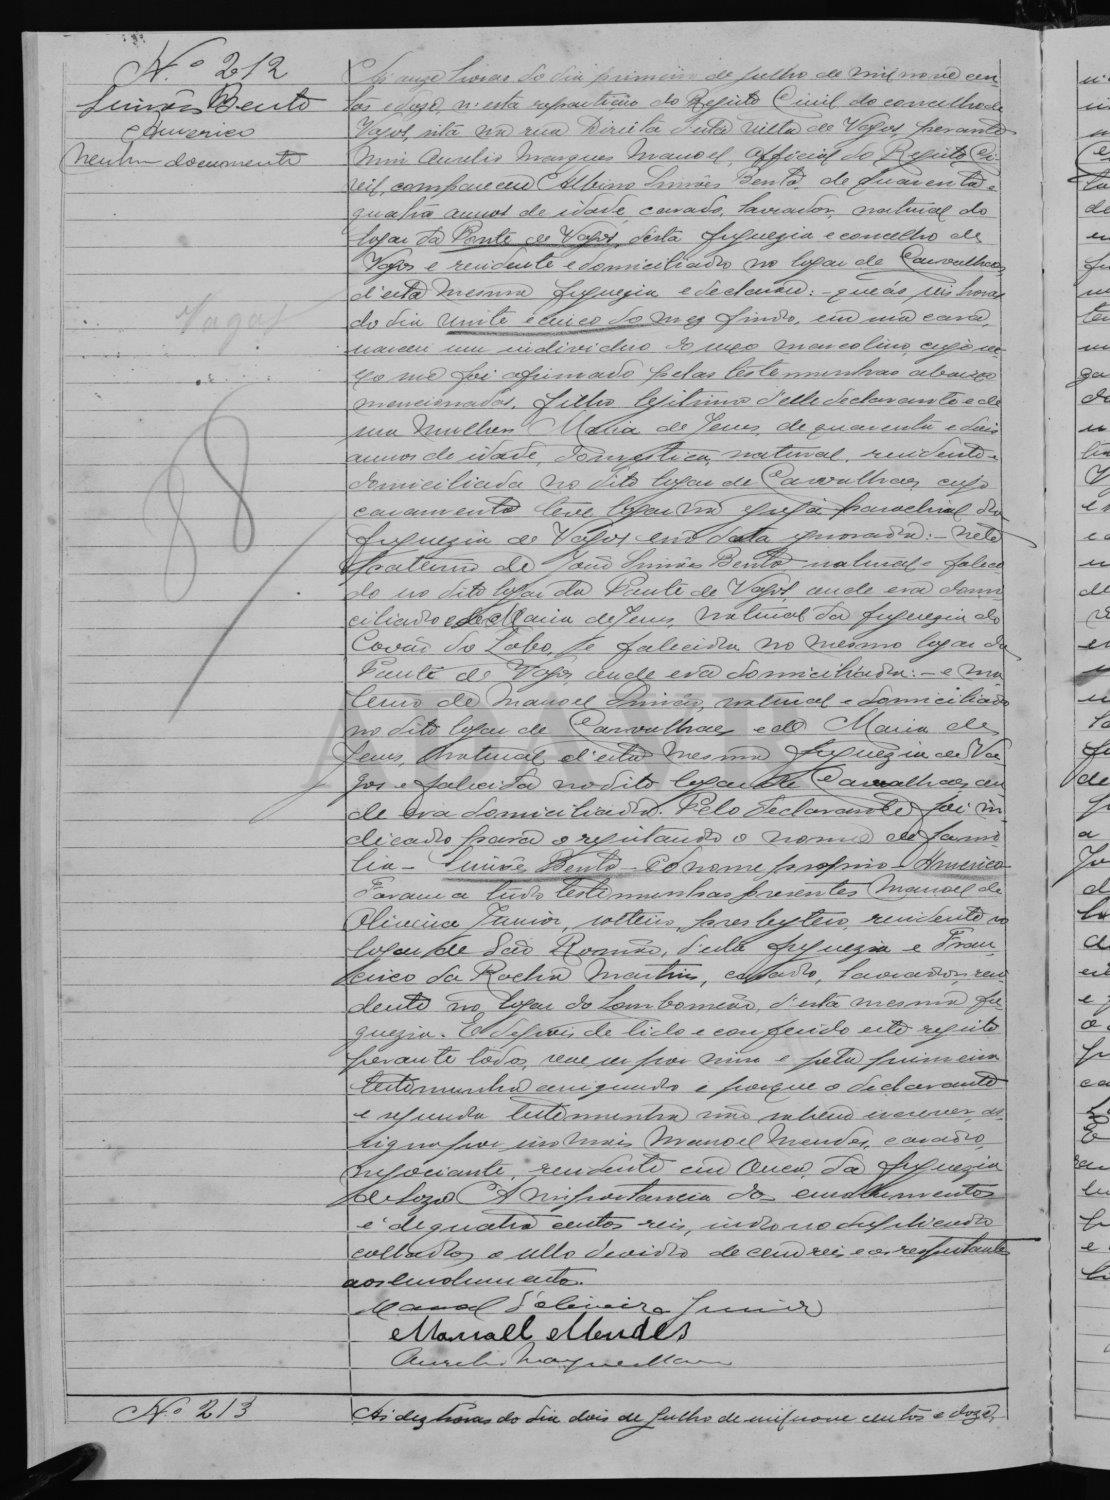 N.º 212
Simões Bento
Americo
Nenhum documento
Vagos
Ás onze horas do dia primeiro de Julho de mil nove cen-
tos e doze, n'esta repartição do Registo Civil do concelho de
Vagos, sita na rua Direita d'esta villa de Vagos, perante
mim Aurelio Marques Manoel, official do Registo Ci-
vil, compareceu Albino Simões Bento, de quarenta e
quatro annos de idade, casado, lavrador, natural do
logar da Ponte de Vagos, d'esta freguezia e concelho de
Vagos e residente e domiciliado no logar de Carvalhaes,
d'esta mesma freguezia e declarou: - que ás seis horas
do dia vinte e cinco do mez findo, em sua casa,
nasceu um individuo do sexo masculino, cujo se-
xo me foi afirmado pelas testemunhas abaixo
mencionadas, filho legitimo d'elle declarante e de
sua mulher Maria de Jesus, de quarenta e dois
annos de idade, domestica, natural, residente e
domiciliada no dito logar de Carvalhaes, cujo
casamento teve logar na igreja parochial da
freguezia de Vagos em data ignorada: - neto
paterno de João Simões Bento, natural e faleci-
do no dito logar da Ponte de Vagos, onde era domi-
ciliado e de Maria de Jesus, natural da freguezia do
Covão do Lobo, e falecida no mesmo logar da
Ponte de Vagos, onde era domiciliada: - e ma-
terno de Manoel Simões, natural e domiciliado
no dito logar de Carvalhaes e de Maria de
Jesus, natural d'esta mesma freguezia de Va-
gos e falecida no dito logar de Carvalhaes, on-
de era domiciliada. Pelo declarante foi in-
dicado para o registando o nome de fami-
lia - Simões Bento - e o nome proprio - Americo -
Foram a tudo testemunhas presentes Manoel de
Oliveira Junior, solteiro, presbytero, residente no
logar de São Romão, d'esta freguezia e Fran-
cisco da Rocha Martins, casado, lavrador, resi-
dente no logar do Lombomeão, d'esta mesma fre-
guezia. E depois de lido e conferido este registo
perante todos, vae ser por mim e pela primeira
testemunha assignado e porque o declarante
e segunda testemunha não sabem escrever, as-
signa por eles mais Manoel Mendes, casado,
negociante, residente em Ouca, da freguezia
de Soza. A importancia dos emolumentos
é de quatro centos reis, indo no duplicado
collados, o sello devido de cem reis e os respeitantes
aos emolumentos.
Manoel d'Oliveira Junior
Manoell Mendes
Aurelio Marques Manoel
N.º 213
Ás dez horas do dia dois de Julho de mil nove centos e doze,
ADAVR